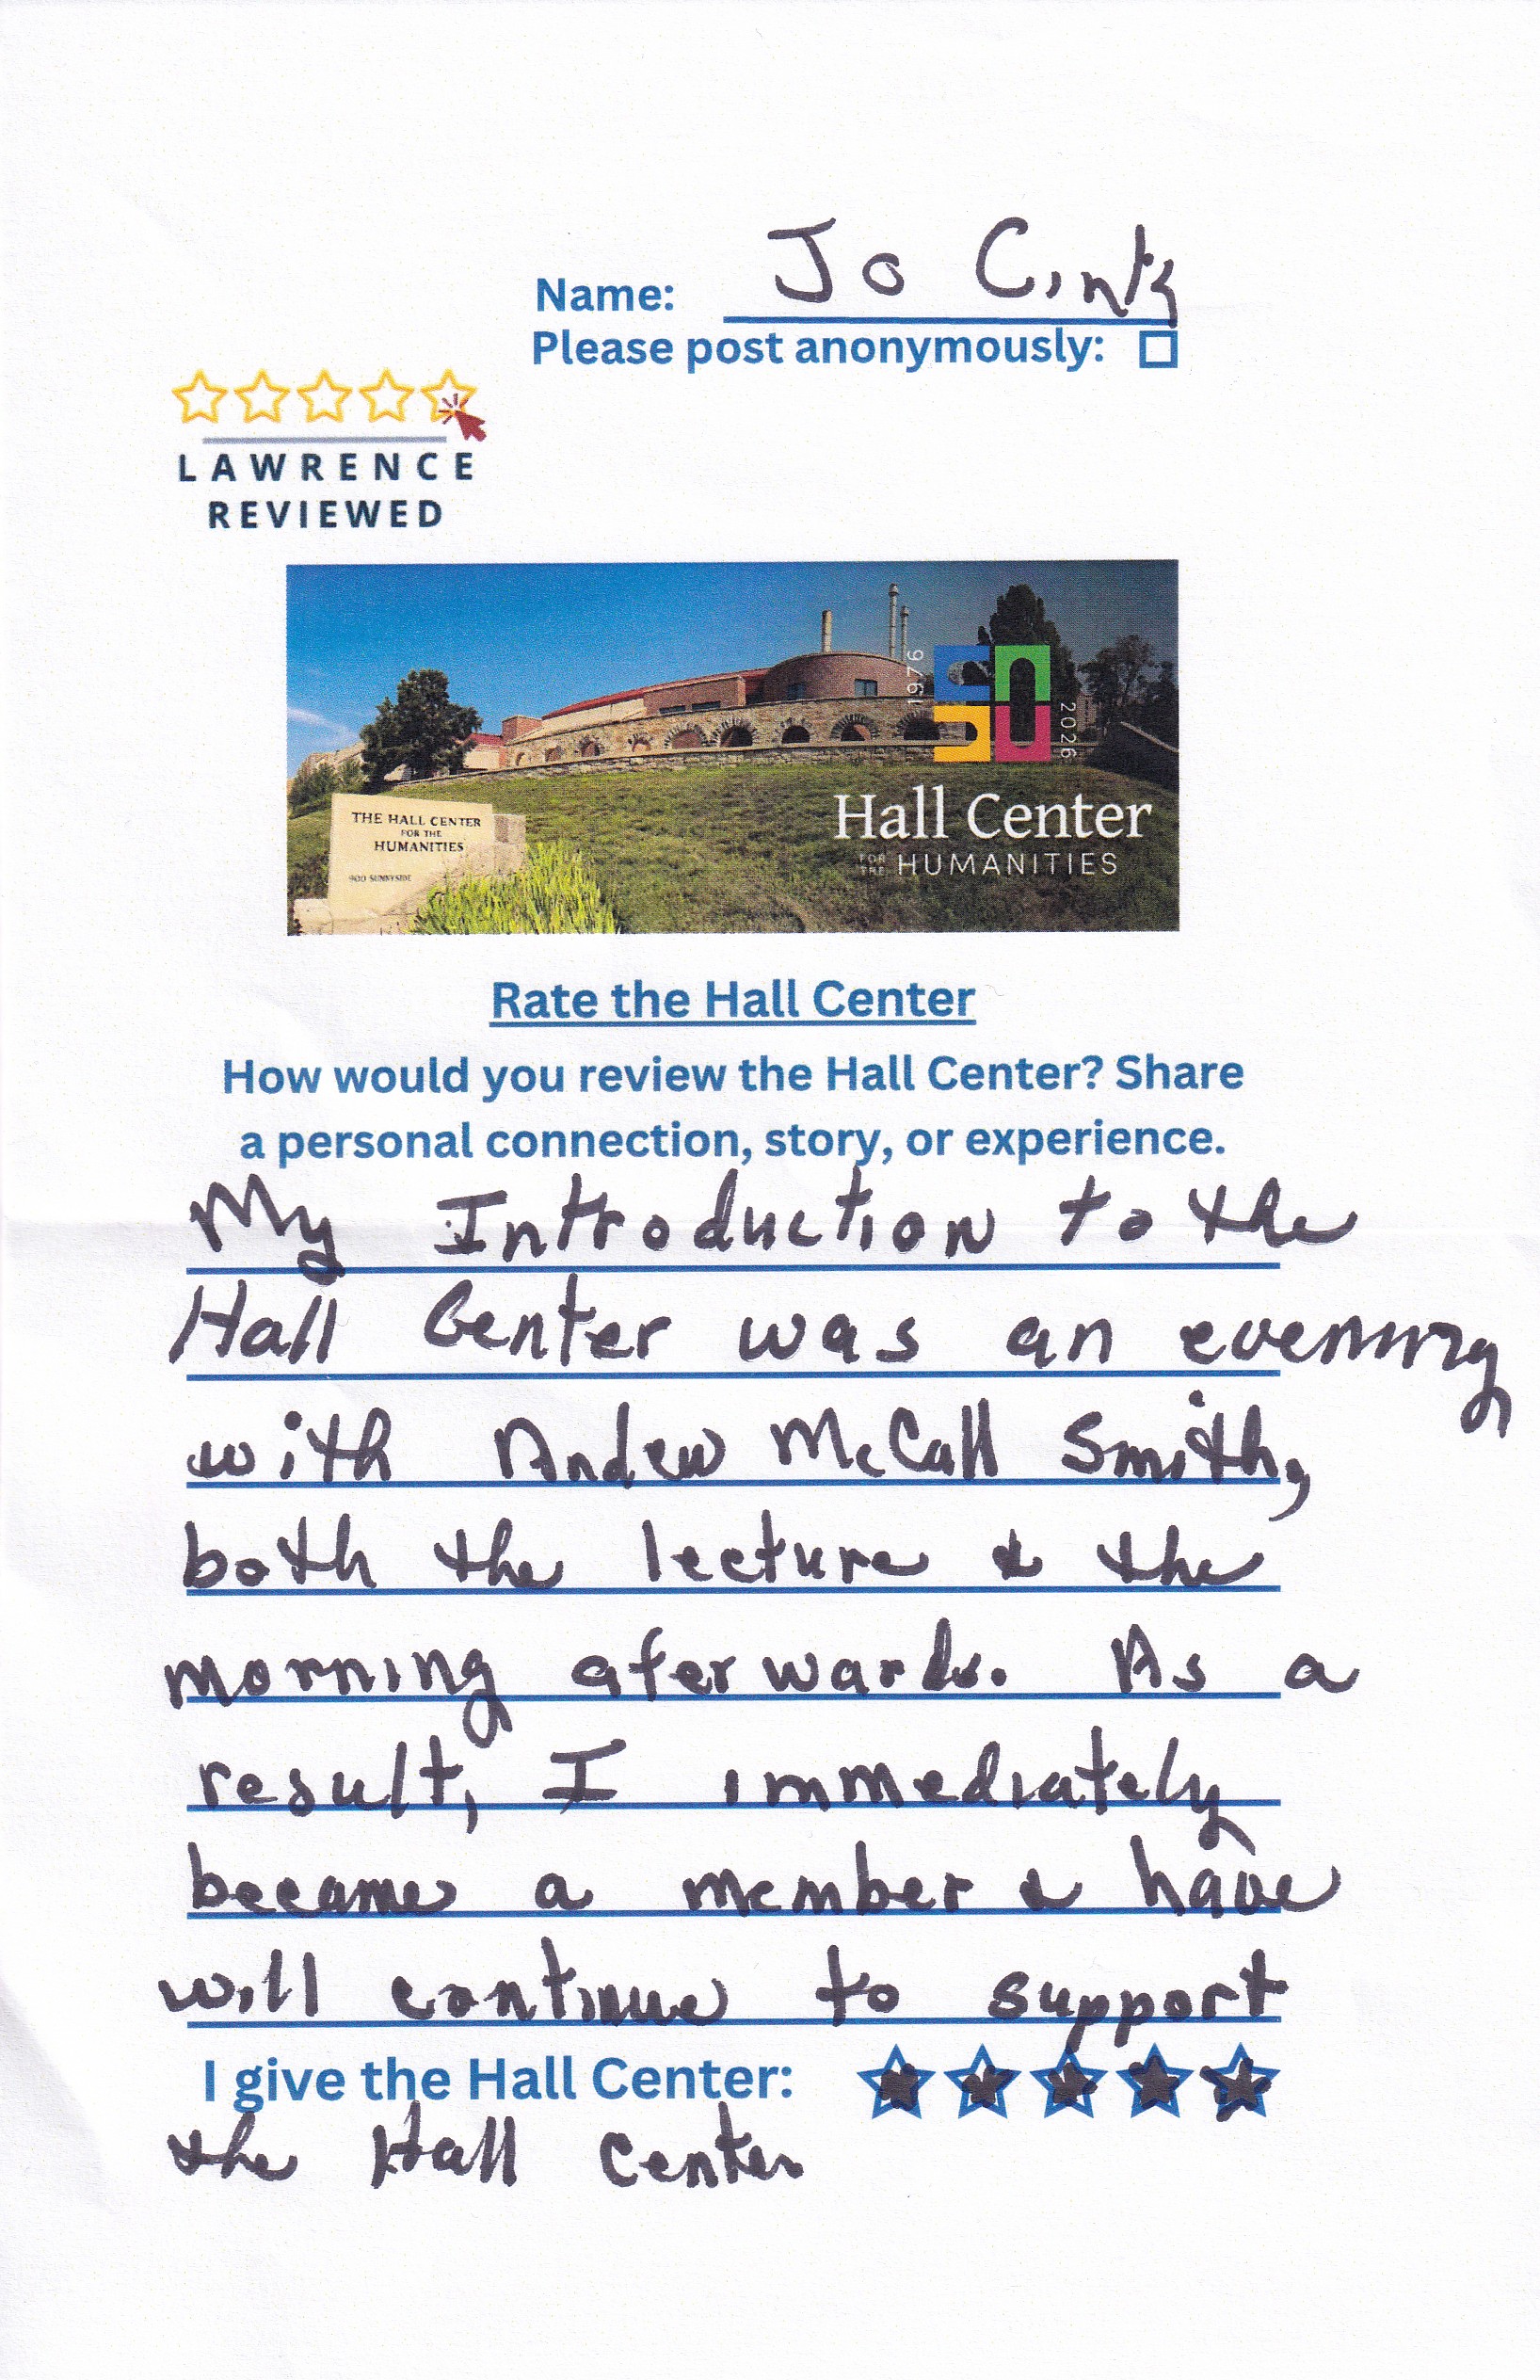 Name: Jo Cintz
Please post anonymously:
LAWRENCE
REVIEWED
1976
50
2026
THE HALL CENTER
FOR THE
HUMANITIES
900 SUNNYSIDE
Hall Center
FOR THE HUMANITIES
Rate the Hall Center
How would you review the Hall Center? Share
a personal connection, story, or experience.
My Introduction to the
Hall Center was an evening
with Andew McCall Smith,
both the lecture & the
morning aferwards. As a
result, I immediately
became a member & have
will continue to support
I give the Hall Center:
the Hall Center